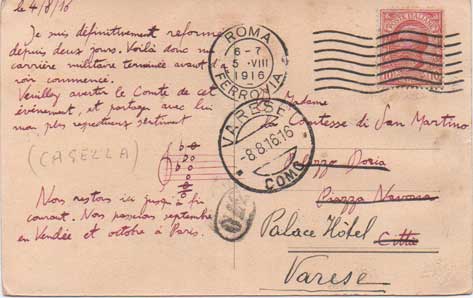 le 4/8/16
Je suis définitivement réformé
depuis deux jours. Voilà donc ma
carrière militaire terminée avant d'a-
voir commencé.
Veuillez avertir le Comte de cet
événement, et partager avec lui
mes plus respectueux sentiments
(CASELLA)
Nous restons ici jusqu'à fin
courant. Nous passons septembre
en Vendée et octobre à Paris.
ROMA
6-7
5 VIII
1916
FERROVIA
POSTE ITALIANE
10
VARESE
-8.8.16.16
COMO
Madame
Comtesse di San Martino
Palazzo Doria
Piazza Navona
Città
Palace Hôtel
Varese